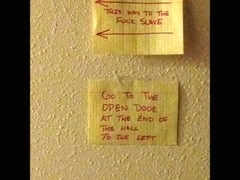 THIS WAY TO THE
FUCK SLAVE
GO TO THE
OPEN DOOR
AT THE END OF
THE HALL
TO THE LEFT